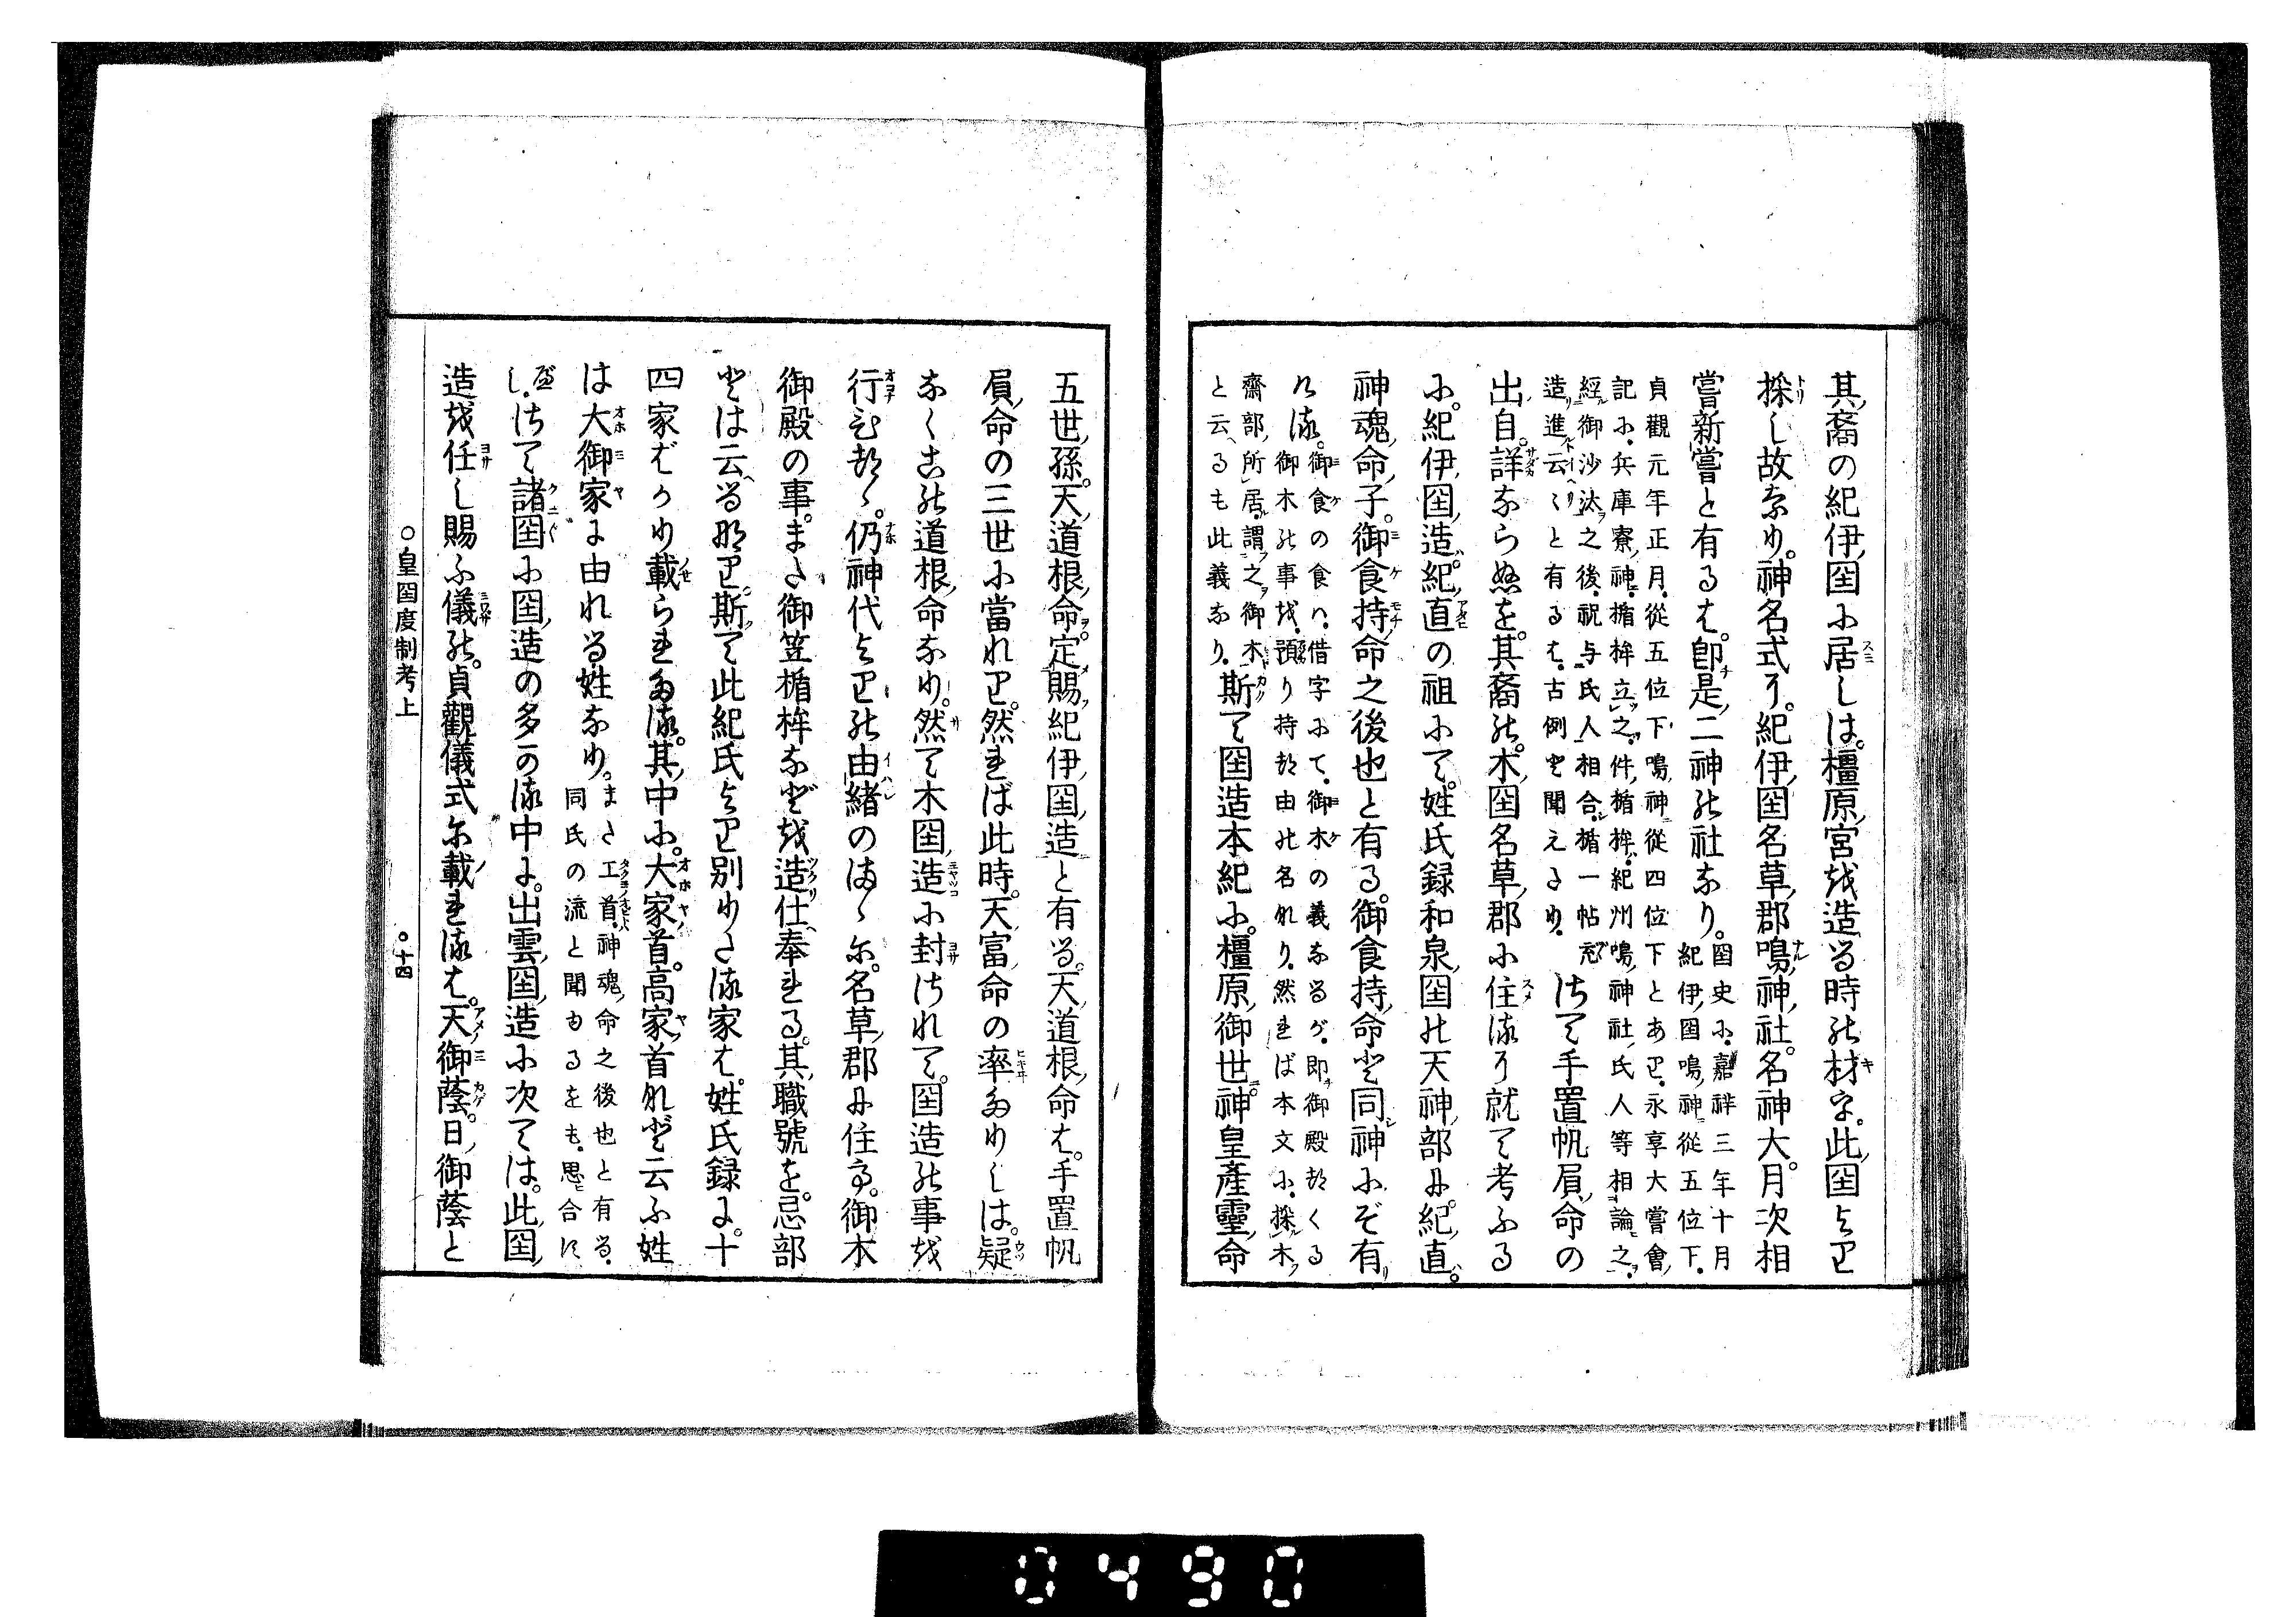 其裔の紀伊国に居しは。橿原宮を造る時の材を。此国より
採し故なり。神名式に。紀伊国名草郡鳴神社。名神大。月次相
嘗新嘗と有るは。即是二神の社なり。国史に。嘉祥三年十月
紀伊国鳴神従五位下。
貞観元年正月。従五位下鳴神従四位下とあり。永享大嘗会
記に。兵庫寮。神楯桙立之。件楯桙。紀州鳴神社氏人等相論之。
経御沙汰之後。祝与氏人相合。楯一帖
造進云々と有るは。古例と聞えたり。
さて手置帆負命の
出自。詳ならぬを。其裔の。木国名草郡に住るに就て考ふる
に。紀伊国造。紀直の祖にて。姓氏録和泉国の天神部に。紀直。
神魂命子。御食持命之後也と有る。御食持命と同神にぞ有
ける。御食の食は。借字にて。御木の義なるが。即御殿つくる
御木の事を。預り持つ由の名なり。然れば本文に。採木
斎部所居。謂之御木
と云るも此義なり。
斯て国造本紀に。橿原御世。神皇産霊命
五世孫。天道根命。定賜紀伊国造と有る。天道根命は。手置帆
負命の三世に当れり。然れば此時。天富命の率たりしは。疑
なく此の道根命なり。然て木国造に封されて。国造の事を
行ひつゝ。仍神代よりの由緒のまゝに。名草郡に住て。御木
御殿の事。また御笠楯桙などを造仕奉れる。其職号を。忌部
とは云る也。斯て此紀氏より別りたる家は。姓氏録に。十
四家ばかり載られたる。其中に。大家首。高家首など云ふ姓
は大御家に由れる姓なり。また工首。神魂命之後也と有る。
同氏の流と聞ゆるをも。思合すべし。
さて諸国に国造の多かる中に。出雲国造に次ては。此国
造を任し賜ふ儀の。貞観儀式に載れるは。天御蔭。日御蔭と
○皇国度制考上
○十四
0490